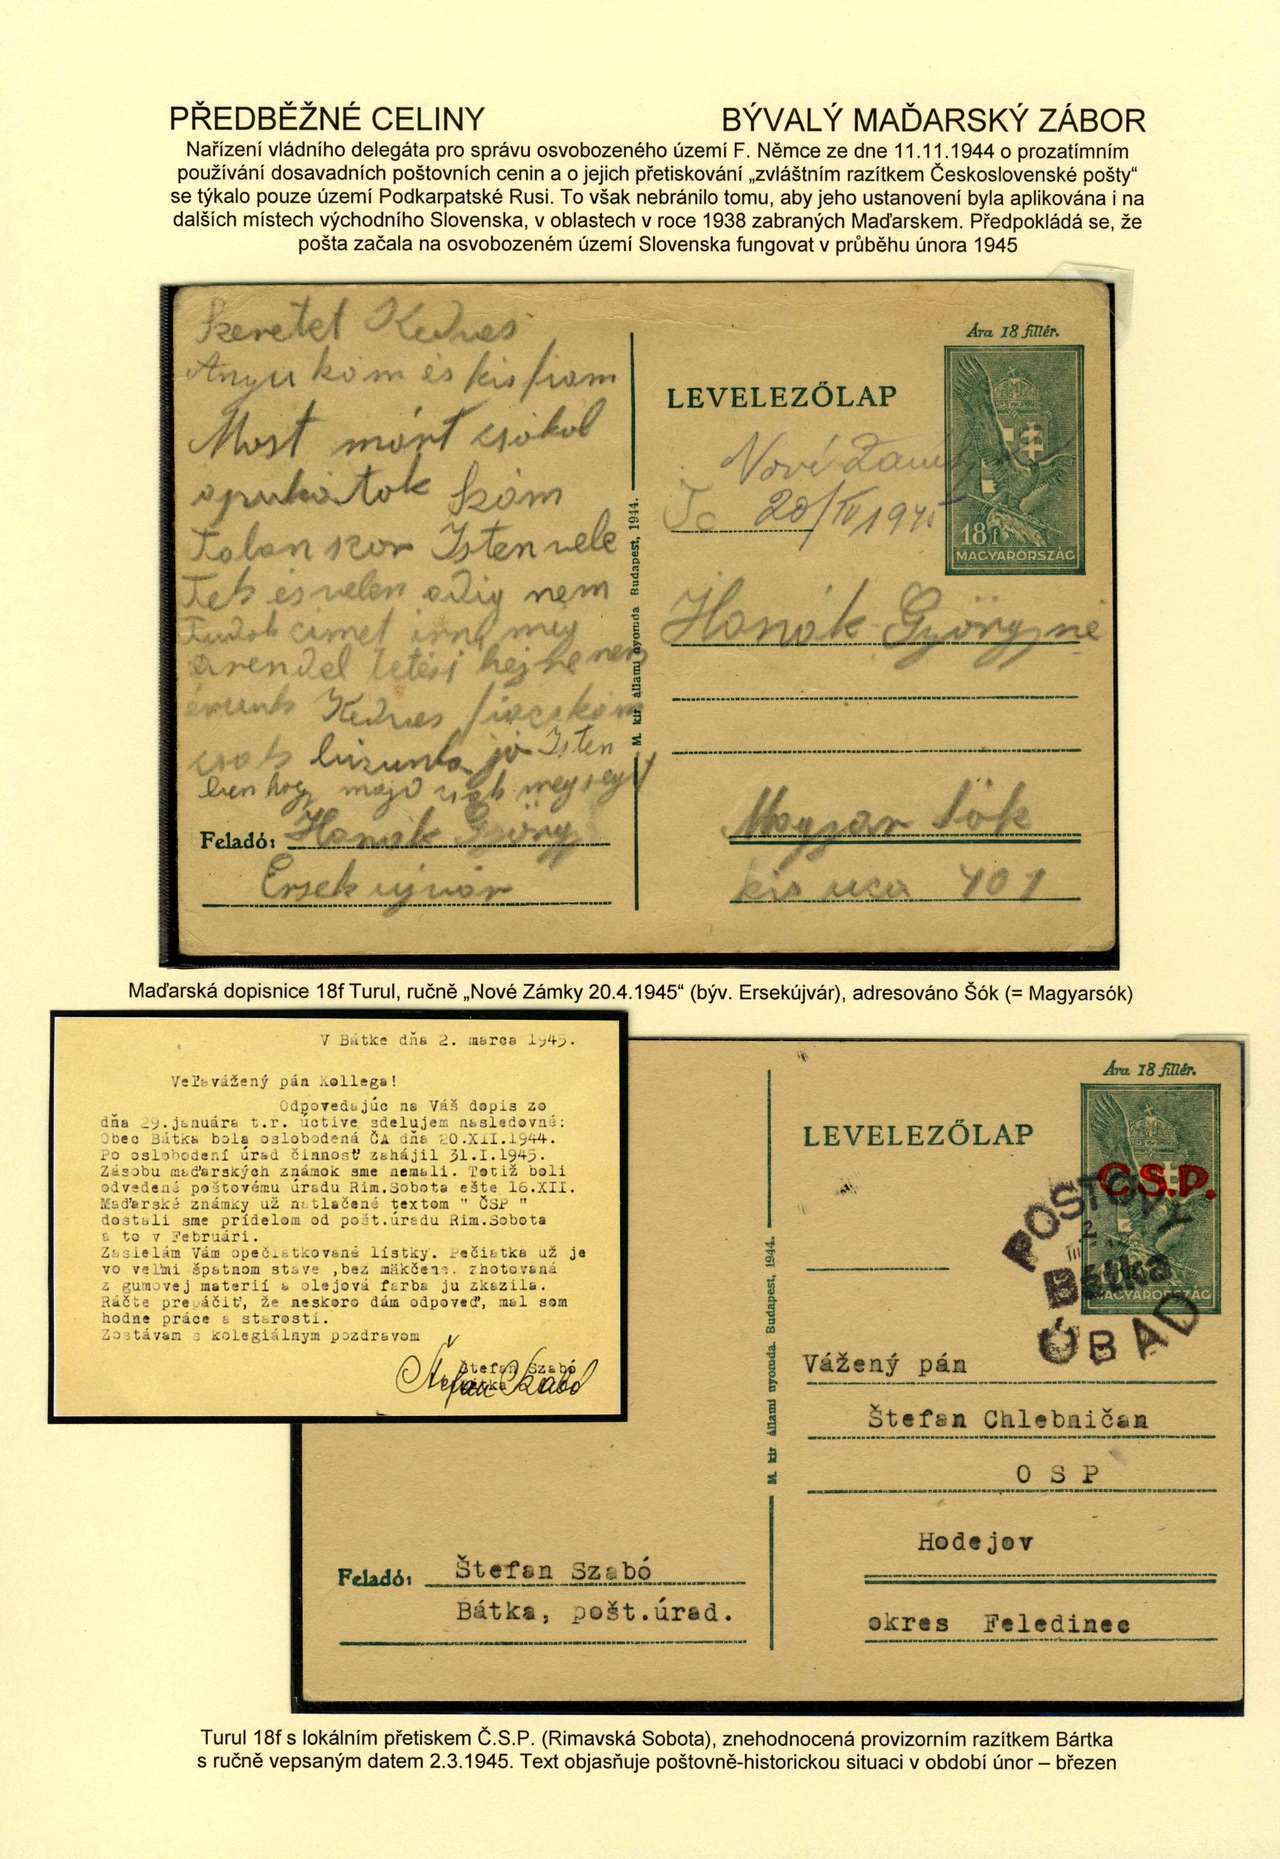 PŘEDBĚŽNÉ CELINY
BÝVALÝ MAĎARSKÝ ZÁBOR
Nařízení vládního delegáta pro správu osvobozeného území F. Němce ze dne 11.11.1944 o prozatímním
používání dosavadních poštovních cenin a o jejich přetiskování „zvláštním razítkem Československé pošty“
se týkalo pouze území Podkarpatské Rusi. To však nebránilo tomu, aby jeho ustanovení byla aplikována i na
dalších místech východního Slovenska, v oblastech v roce 1938 zabraných Maďarskem. Předpokládá se, že
pošta začala na osvobozeném území Slovenska fungovat v průběhu února 1945
Szeretet Kedves
Anyu kám és kis fiam
Most márt csókol
apukátok Szám
Talan szor Isten vele
Tek és velen adig nem
Tudok címet írni még
a rendel tetési hejre nem
érünk Kedves fiacskám
csak bizunk jó Isten
ben hogy majd meg segít
Feladó: Hanák György
Ersek ujvár
Ára 18 fillér.
LEVELEZŐLAP
18f
MAGYARORSZÁG
Nové Zámky
20/IV 1945
Hanák Györgyné
Magyar Sók
kis uca 401
M. kir. állami nyomda Budapest, 1944.
Maďarská dopisnice 18f Turul, ručně „Nové Zámky 20.4.1945“ (býv. Ersekújvár), adresováno Šók (= Magyarsók)
V Bátke dňa 2. marca 1945.
Veľavážený pán Kollega!
Odpovedajúc na Váš dopis zo
dňa 29.januára t.r. úctive sdelujem nasledovné:
Obec Bátka bola oslobodená ČA dňa 20.XII.1944.
Po oslobodení úrad činnosť zahájil 31.I.1945.
Zásobu maďarských známok sme nemali. Totiž boli
odvedené poštovému úradu Rim.Sobota ešte 16.XII.
Maďarské známky už natlačené textom " ČSP "
dostali sme prídelom od pošt.úradu Rim.Sobota
a to v Februári.
Zasielám Vám opečiatkované lístky. Pečiatka už je
vo veľmi špatnom stave ,bez mäkčeňa zhotovaná
z gumovej materií a olejová farba ju zkazila.
Ráčte prepáčiť, že neskoro dám odpoveď, mal som
hodne práce a starostí.
Zostávam s kolegiálnym pozdravom
Štefan Szabó
Bátka
Štefan Szabó
Ára 18 fillér.
LEVELEZŐLAP
Č.S.P.
POSTOVY
Bátka
ÚRAD
MAGYARORSZÁG
M. kir. állami nyomda. Budapest, 1944.
Vážený pán
Štefan Chlebničan
O S P
Hodejov
okres Feledinec
Feladó: Štefan Szabó
Bátka, pošt.úrad.
Turul 18f s lokálním přetiskem Č.S.P. (Rimavská Sobota), znehodnocená provizorním razítkem Bártka
s ručně vepsaným datem 2.3.1945. Text objasňuje poštovně-historickou situaci v období únor – březen